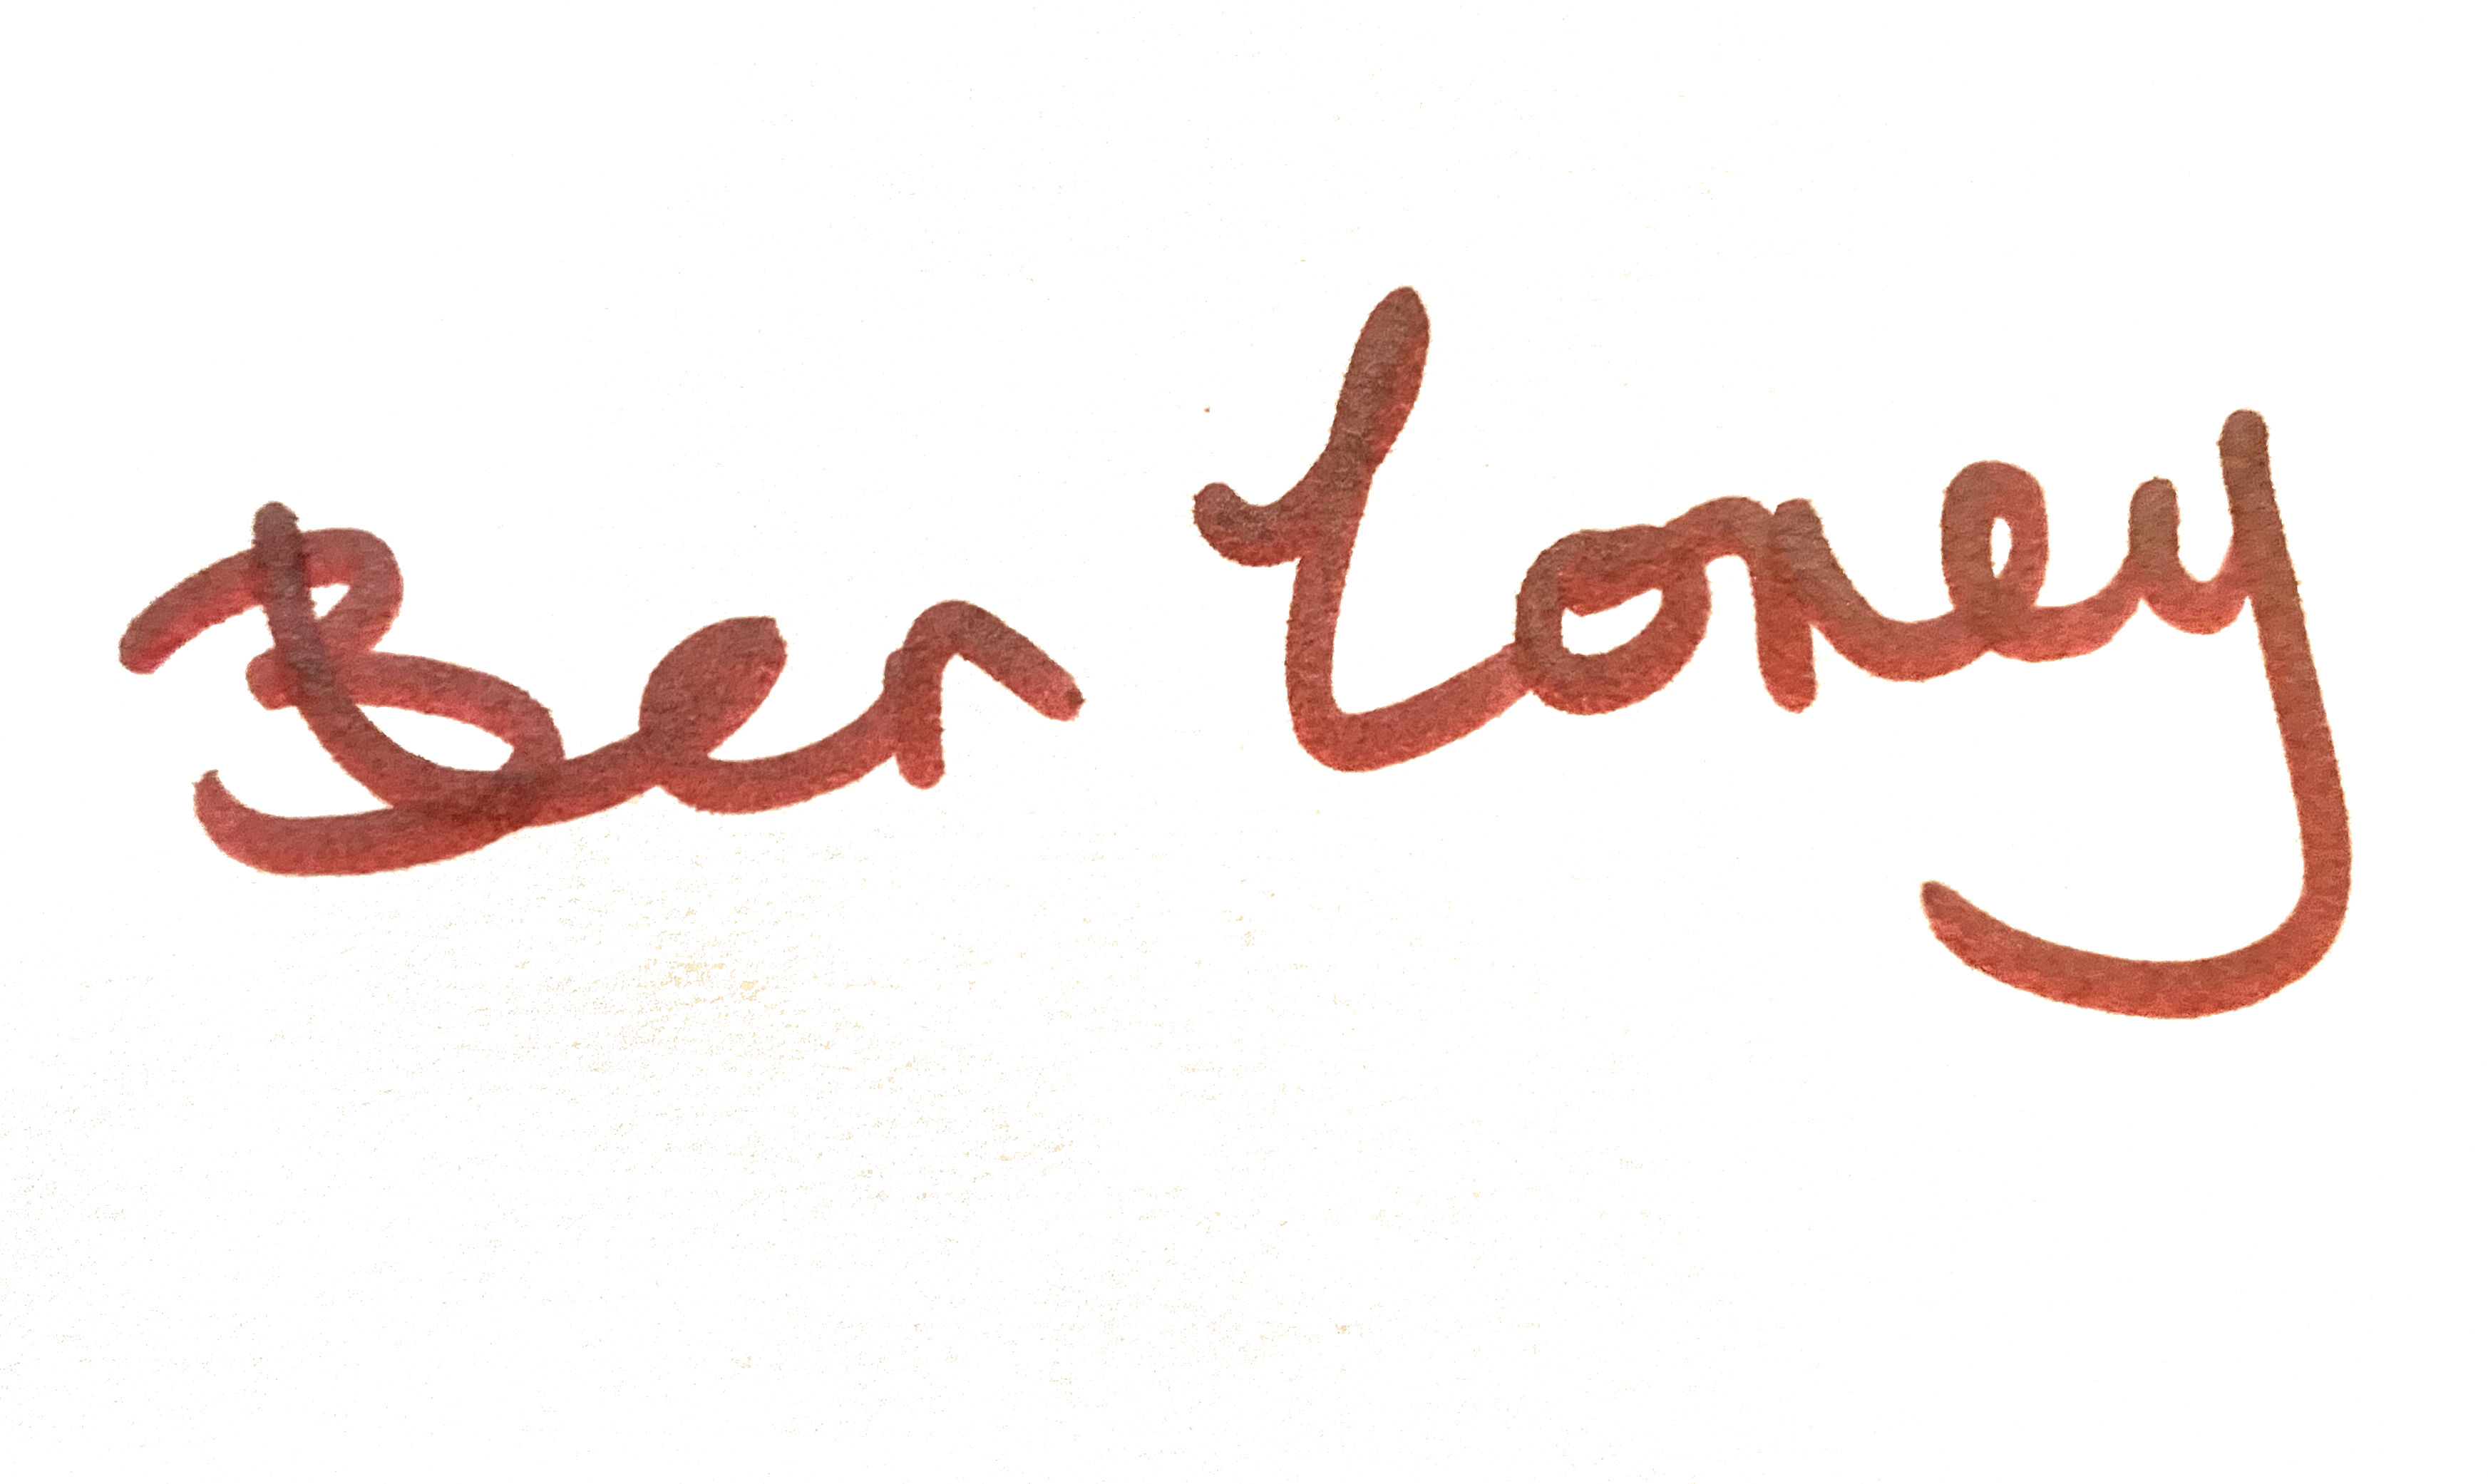 Ben Loney